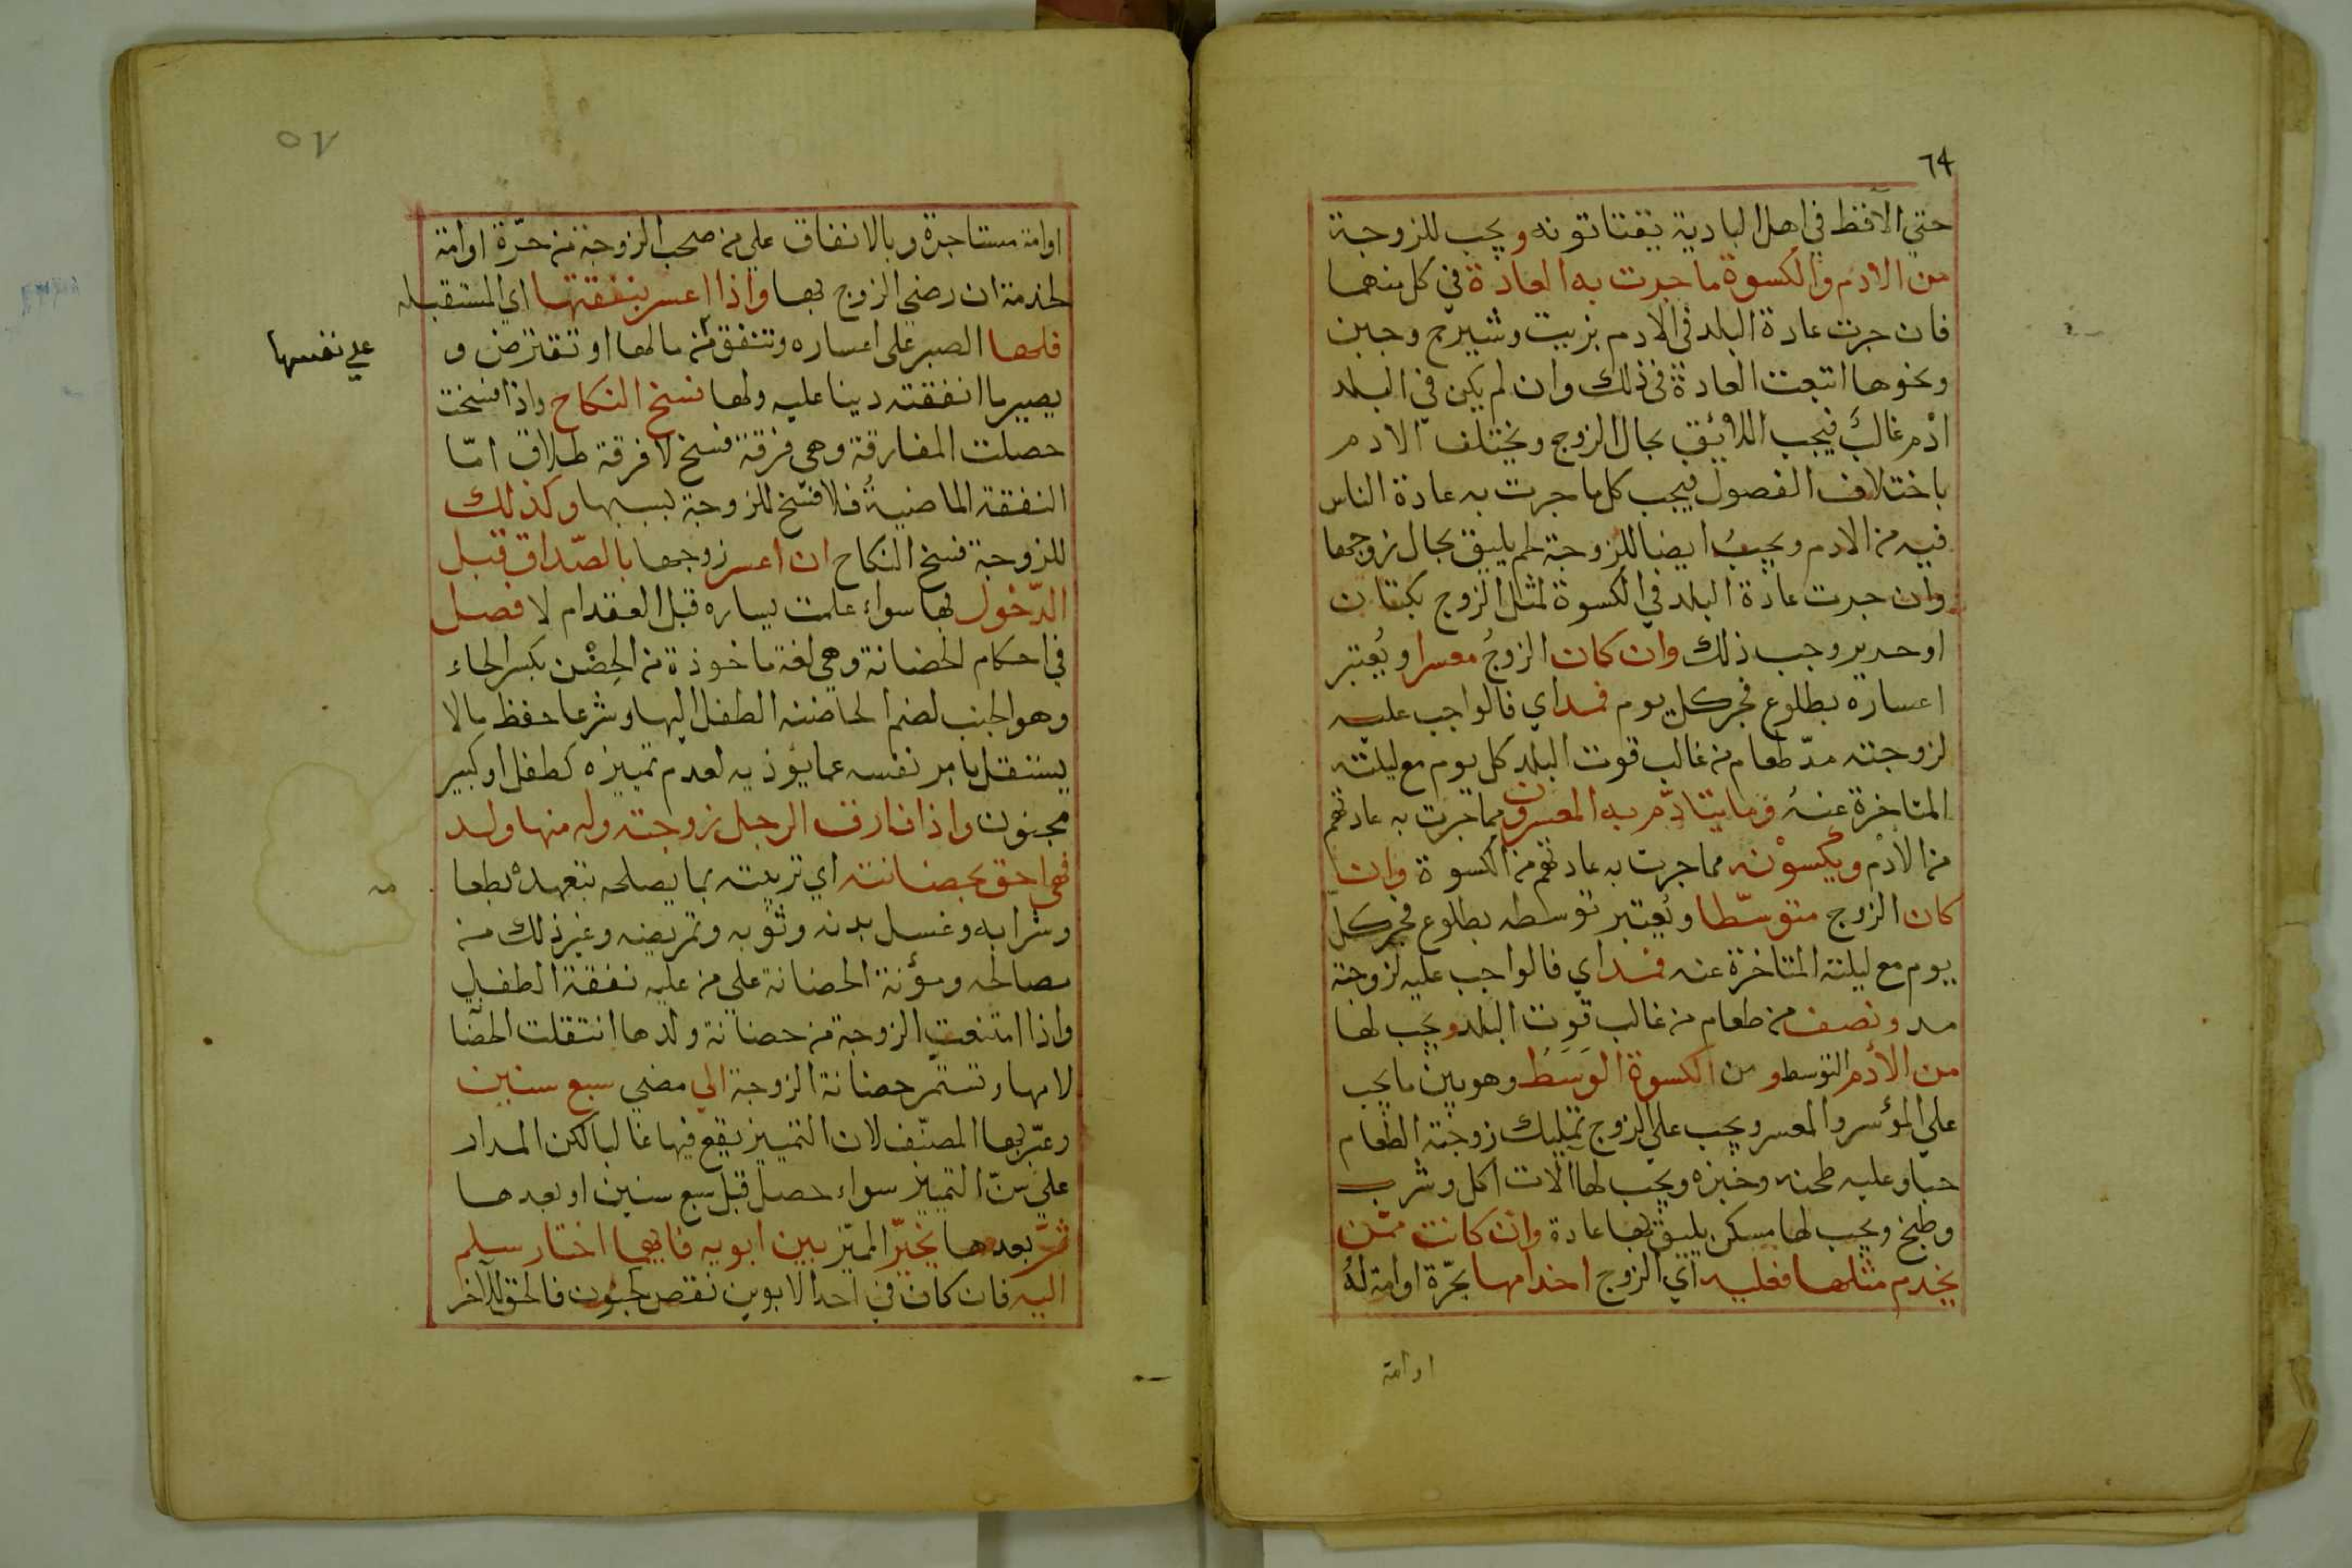 ٦٤
حتي الاقط في اهل البادية يقتاتونه ويجب للزوجة
من الادم والكسوة ما جرت به العادة في كل منهما
فان جرت عادة البلد في الادم بزيت وشيرج وجبن
ونحوها اتبعت العادة في ذلك وان لم يكن في البلد
ادم غالب فيجب اللائق بحال الزوج ويختلف الادم
باختلاف الفصول فيجب كل ما جرت به عادة الناس
فيه من الادم ويجب ايضا للزوجة لحم يليق بحال زوجها
وان جرت عادة البلد في الكسوة لمثل الزوج بكتان
او حرير وجب ذلك وان كان الزوج معسرا ويعتبر
اعساره بطلوع فجر كل يوم فمد اي فالواجب عليه
لزوجته مد طعام من غالب قوت البلد كل يوم مع ليلته
المتاخرة عنه وما يتأدم به المعسرون مما جرت به عادتهم
من الادم ويكسونه مما جرت به عادتهم من الكسوة وان
كان الزوج متوسطا ويعتبر توسطه بطلوع فجر كل
يوم مع ليلته المتاخرة عنه فمد اي فالواجب عليه لزوجته
مد ونصف من طعام من غالب قوت البلد ويجب لها
من الأدم التوسط ومن الكسوة الوسط وهو بين ما يجب
علي المؤسر والمعسر ويجب علي الزوج تمليك زوجته الطعام
حبا وعليه طحنه وخبزه ويجب لها آلات اكل وشرب
وطبخ ويجب لها مسكن يليق بها عادة وان كانت ممن
يخدم مثلها فعليه اي الزوج اخدامها بحرة او امة له
او امة
٥٧
او امة مستاجرة وبالانفاق علي من صحب الزوجة من حرة او امة
لخدمة ان رضي الزوج بها واذا اعسر بنفقتها اي المستقبله
فلها الصبر على اعساره وتنفق من مالها او تقترض و
علي نفسها
يصير ما انفقته دينا عليه ولها فسخ النكاح واذا فسخت
حصلت المفارقة وهي فرقة فسخ لا فرقة طلاق امّا
النفقة الماضية فلا فسخ للزوجة بسببها وكذلك
للزوجة فسخ النكاح ان اعسر زوجها بالصّداق قبل
الدّخول بها سواء علمت يساره قبل العقد ام لا فصل
في احكام الحضانة وهي لغة ماخوذة من الحِضْن بكسر الحاء
وهو الجنب لضم الحاضنه الطفل اليها وشرعا حفظ ما لا
يستقل بامر نفسه عما يؤذيه لعدم تمييزه كطفل او كبير
مجنون واذا فارق الرجل زوجته وله منها ولد
فهي احق بحضانته اي تربيته بما يصلحه بتعهده بطعا
مه
وشرابه وغسل بدنه وثوبه وتمريضه وغير ذلك من
مصالحه ومؤنة الحضانة علي من عليه نفقة الطفل
واذا امتنعت الزوجة من حضانة ولدها انتقلت الحضا
لامها وتستمر حضانة الزوجة الي مضي سبع سنين
وعبّر بها المصنّف لان التمييز يقع فيها غالبا لكن المدار
علي سنّ التمييز سواء حصل قبل سبع سنين او بعدها
ثمّ بعدها يخيّر المميّز بين ابويه فايهما اختار سلم
اليه فان كان في احد الابوين نقص كجنون فالحق للآخر